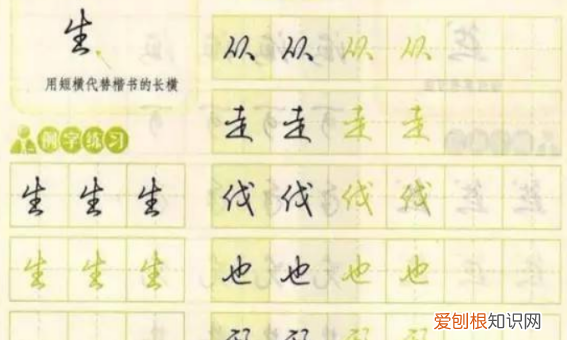 生
用短横代替楷书的长横
例字练习
生 生 生
生 生 生
从 从 从 从
走 走 走 走
伐 伐 伐 伐
也 也 也 也
爱刨根知识网